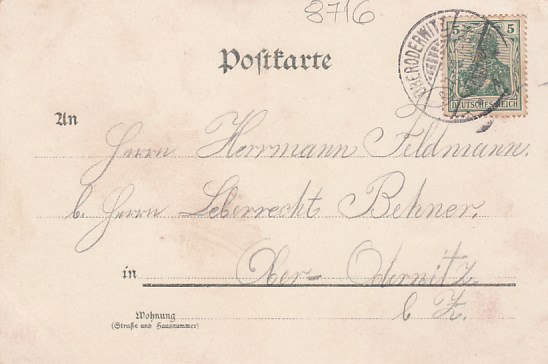 8716
Postkarte
OBERODERWITZ
5 5
DEUTSCHES REICH
An
Herrn Herrmann Feldmann.
b. Herrn Leberrecht Behner,
in Ober-Oderwitz
b Z.
Wohnung
(Straße und Hausnummer)